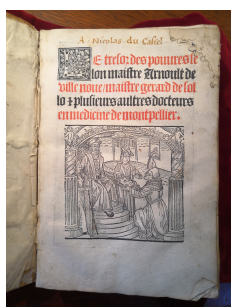 A. Nicolas du Castel
LE tresor des pouures se
lon maistre Arnoult de
ville noue/maistre gerard de sol
lo & plusieurs aultres docteurs
en medicine de montpellier.